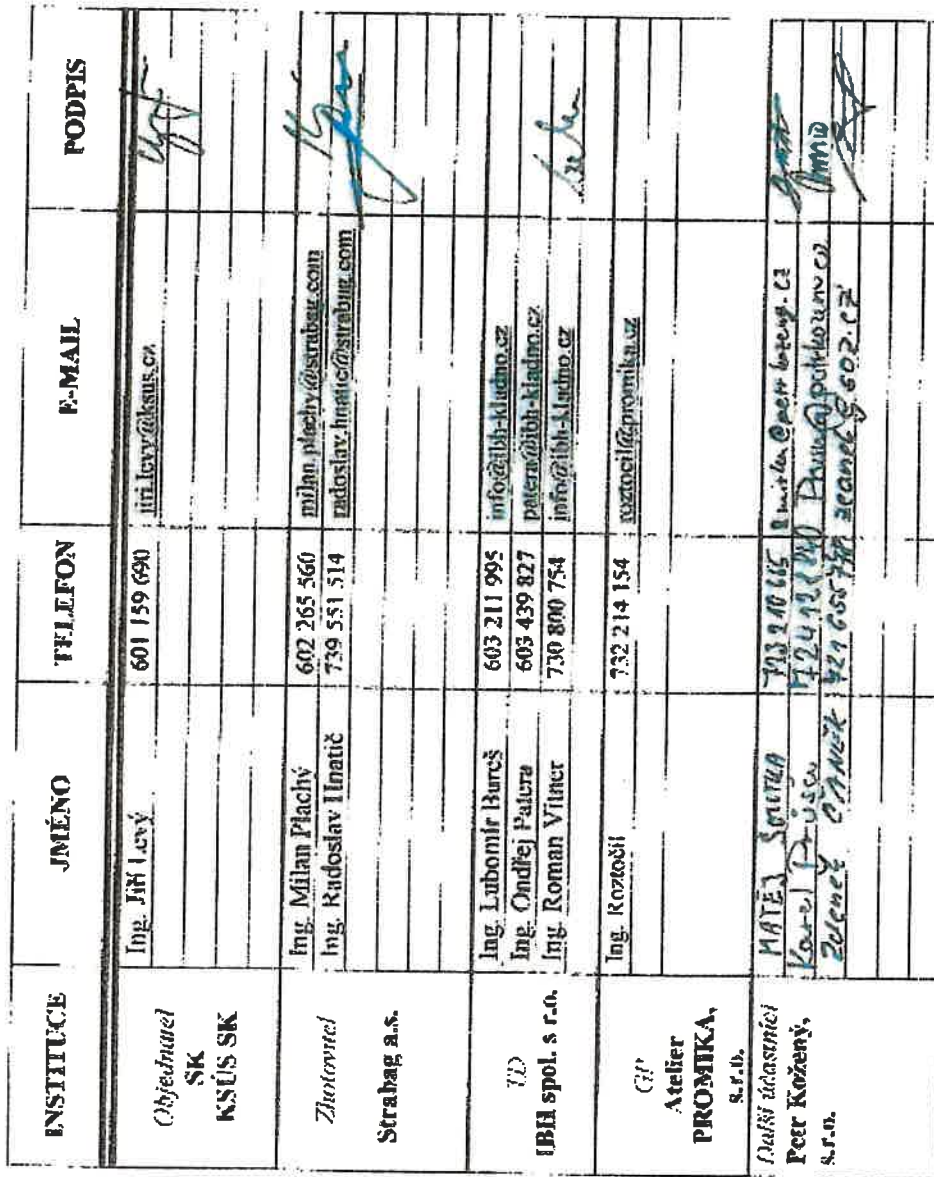 INSTITUCE JMÉNO TELEFON E-MAIL PODPIS
Objednatel
SK
KSÚS SK
Ing. Jiří Levý 601 159 690 jiri.levy@ksus.cz
Zhotovitel
Strabag a.s.
Ing. Milan Plachý 602 265 560 milan.plachy@strabag.com
Ing. Radoslav Hnatič 739 551 514 radoslav.hnatic@strabag.com
TD
IBH spol. s r.o.
Ing. Lubomír Bureš 603 211 995 info@ibh-kladno.cz
Ing. Ondřej Patera 603 439 827 patera@ibh-kladno.cz
Ing. Roman Vilner 730 800 754 info@ibh-kladno.cz
GP
Atelier
PROMIKA,
s.r.o.
Ing. Roztočil 732 214 154 roztocil@promika.cz
Další účastníci
Petr Kožený,
s.r.o.
MATĚJ
Karel
Zdeněk